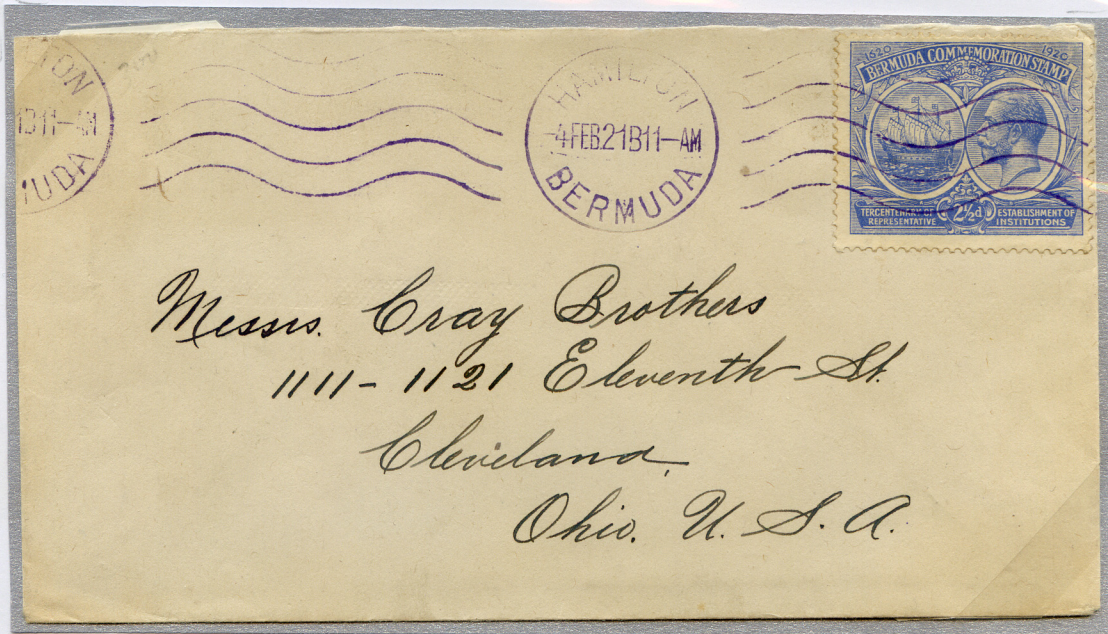 TON
1B11-AM
MUDA
300
HAMILTON
4FEB21B11-AM
BERMUDA
1620 1920
BERMUDA COMMEMORATION STAMP
TERCENTENARY OF REPRESENTATIVE
2½d
ESTABLISHMENT OF INSTITUTIONS
Messrs. Cray Brothers
1111-1121 Eleventh St.
Cleveland,
Ohio. U. S. A.